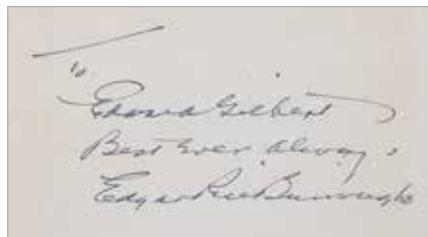 To
Edward Gilbert
Best Ever Always
Edgar Rice Burroughs